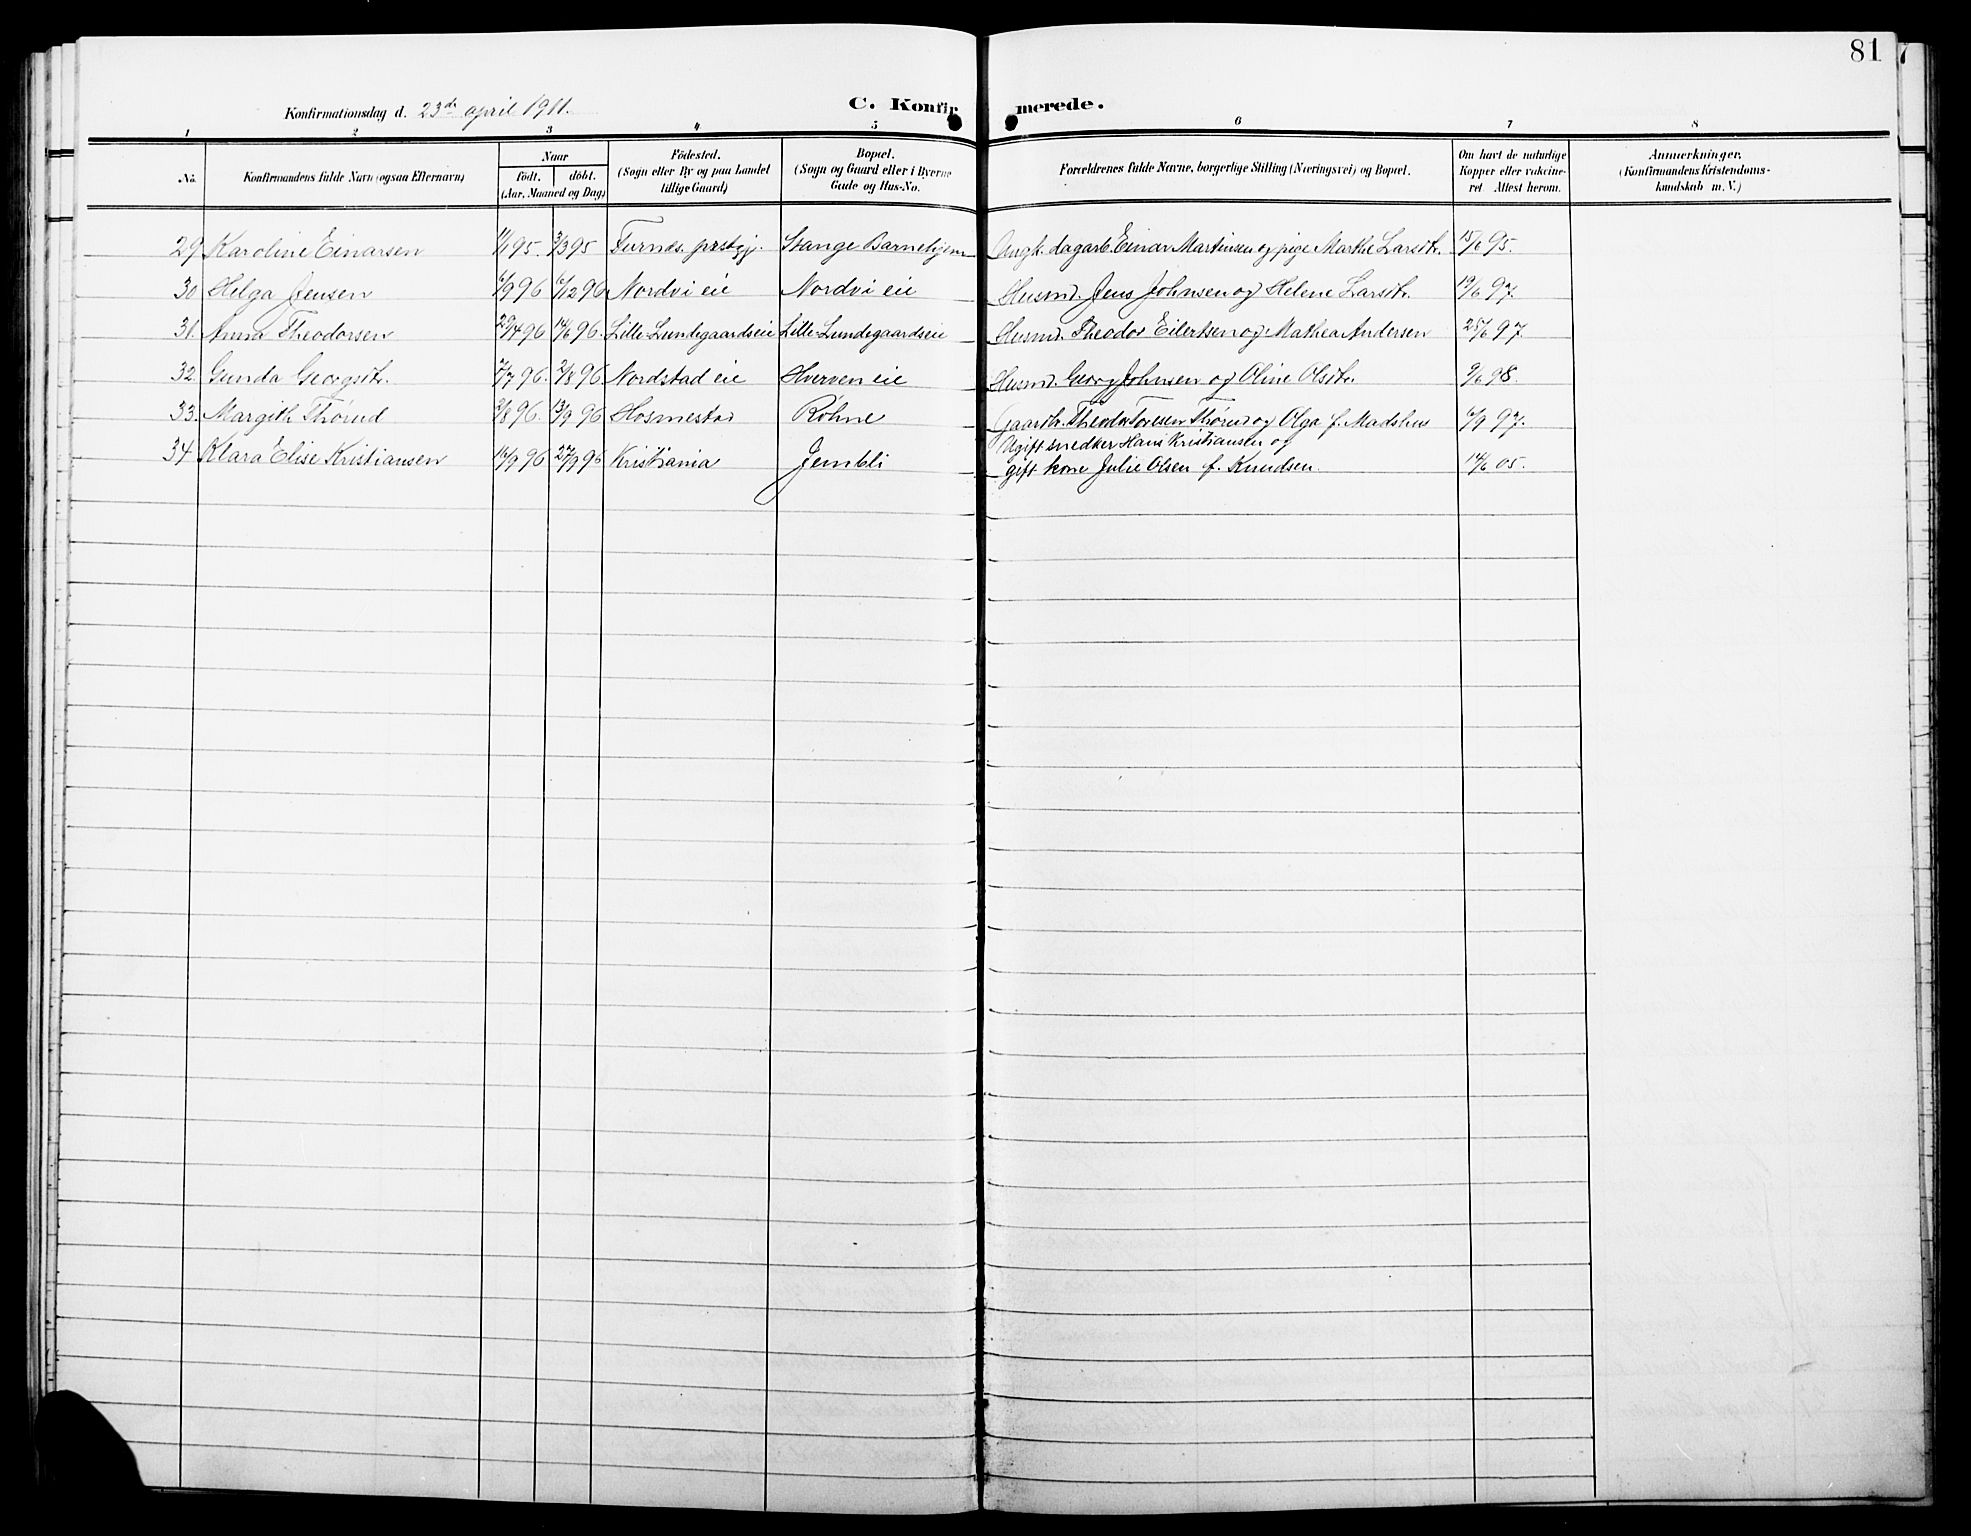 81
Konfirmationsdag d. 23de april 1911. C. Konfirmerede.
1 2 3 4 5 6 7 8
No. Konfirmandens fulde Navn (ogsaa Efternavn) Naar født. døbt. (Aar, Maaned og Dag) Fødested. (Sogn eller By og paa Landet tillige Gaard) Bopæl. (Sogn og Gaard eller i Byerne Gade og Hus-No. Forældrenes fulde Navne, borgerlige Stilling (Næringsvei) og Bopæl. Om havt de naturlige Kopper eller vaccineret. Attest herom. Anmærkninger. (Konfirmandens Kristendomskundskab m. V.)
29 Karoline Einarsen 11/1 95. 3/3 95 Furnes præstgj. Stange Barnehjem Ungk. dagarb. Einar Martinsen og pige Marthe Larsdtr. 15/6 95.
30 Helga Jensen 6/9 96 6/12 96 Nordvi eie Nordvi eie Husmd. Jens Johnsen og Helene Larsdtr. 19/6 97.
31. Anna Theodorsen 29/4 96 14/6 96. Lille-Lundegaardseie Lille-Lundegaardseie Husmd. Theodor Eilertsen og Mathea Andersen 25/6 97
32. Gunda Georgsdtr. 7/7 96. 2/8 96 Nordstad eie Hverven eie Husmd. Georg Johnsen og Oline Olsdtr. 9/6 98.
33. Margith Thørud 3/8 96. 13/9 96 Hosmestad Röhne Gaardbr. Theodor Toresen Thørud og Olga f. Madshus 6/9 97.
34 Klara Elise Kristiansen 16/9 96 27/9 96 Kristiania Jembli Ugift snedker Hans Kristiansen og
gift kone Julie Olsen f. Knudsen. 14/6 05.